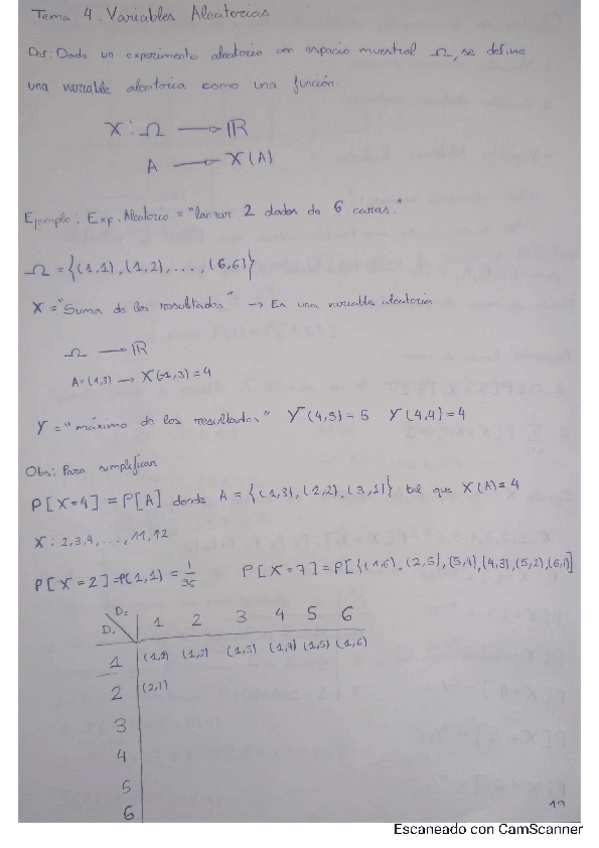 Tema 4. Variables Aleatorias
Def: Dado un experimento aleatorio con espacio muestral Ω, se define
una variable aleatoria como una función:
X: Ω → ℝ
A → X(A)
Ejemplo: Exp. Aleatorio = "lanzar 2 dados de 6 caras."
Ω = {(1,1), (1,2), ..., (6,6)}
X = "Suma de los resultados" → Es una variable aleatoria
Ω → ℝ
A = (1,3) → X(1,3) = 4
Y = "máximo de los resultados" Y(4,5) = 5 Y(4,4) = 4
Obs: Para simplificar
P[X=4] = P[A] donde A = {(1,3), (2,2), (3,1)} tal que X(A) = 4
X: 2,3,4, ..., 11,12
P[X=2] = P(1,1) = 1/36 P[X=7] = P[{(1,6), (2,5), (5,4), (4,3), (5,2), (6,1)]
D₂
D₁ 1 2 3 4 5 6
1 (1,1) (1,2) (1,3) (1,4) (1,5) (1,6)
2 (2,1)
3
4
5
6
19
Escaneado con CamScanner